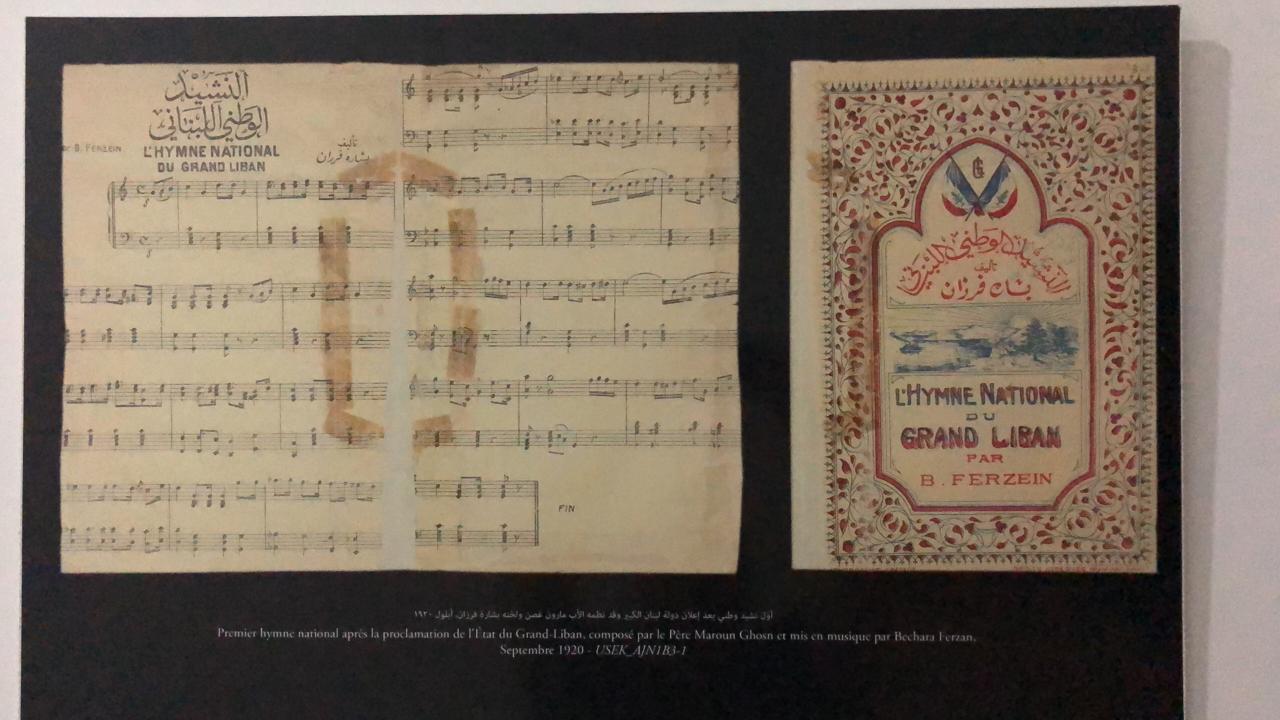 النشيد
الوطني اللبناني
B. FERZEIN
L'HYMNE NATIONAL
DU GRAND LIBAN
تأليف
بشاره فرزان
FIN
النشيد الوطني اللبناني
تأليف
فرزان
L'HYMNE NATIONAL
DU
GRAND LIBAN
PAR
B. FERZEIN
أوّل نشيد وطني بعد إعلان دولة لبنان الكبير وقد نظمه الأب مارون غصن ولحنه بشارة فرزان، أيلول ١٩٢٠
Premier hymne national après la proclamation de l'État du Grand-Liban, composé par le Père Maroun Ghosn et mis en musique par Bechara Ferzan,
Septembre 1920 - USEK_AJN1B3-1